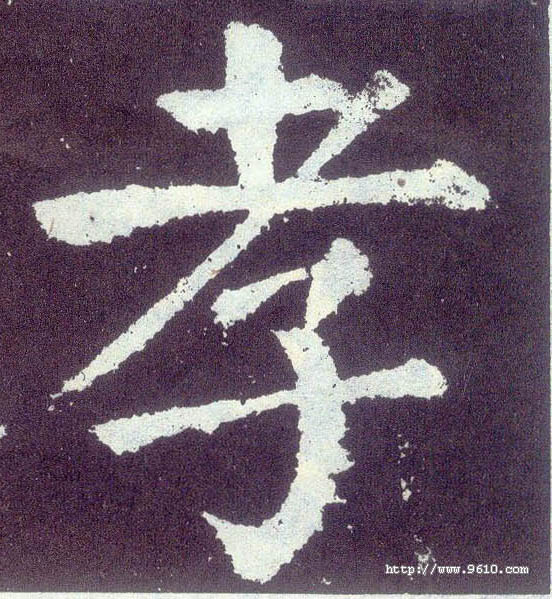 孝
http://www.9610.com